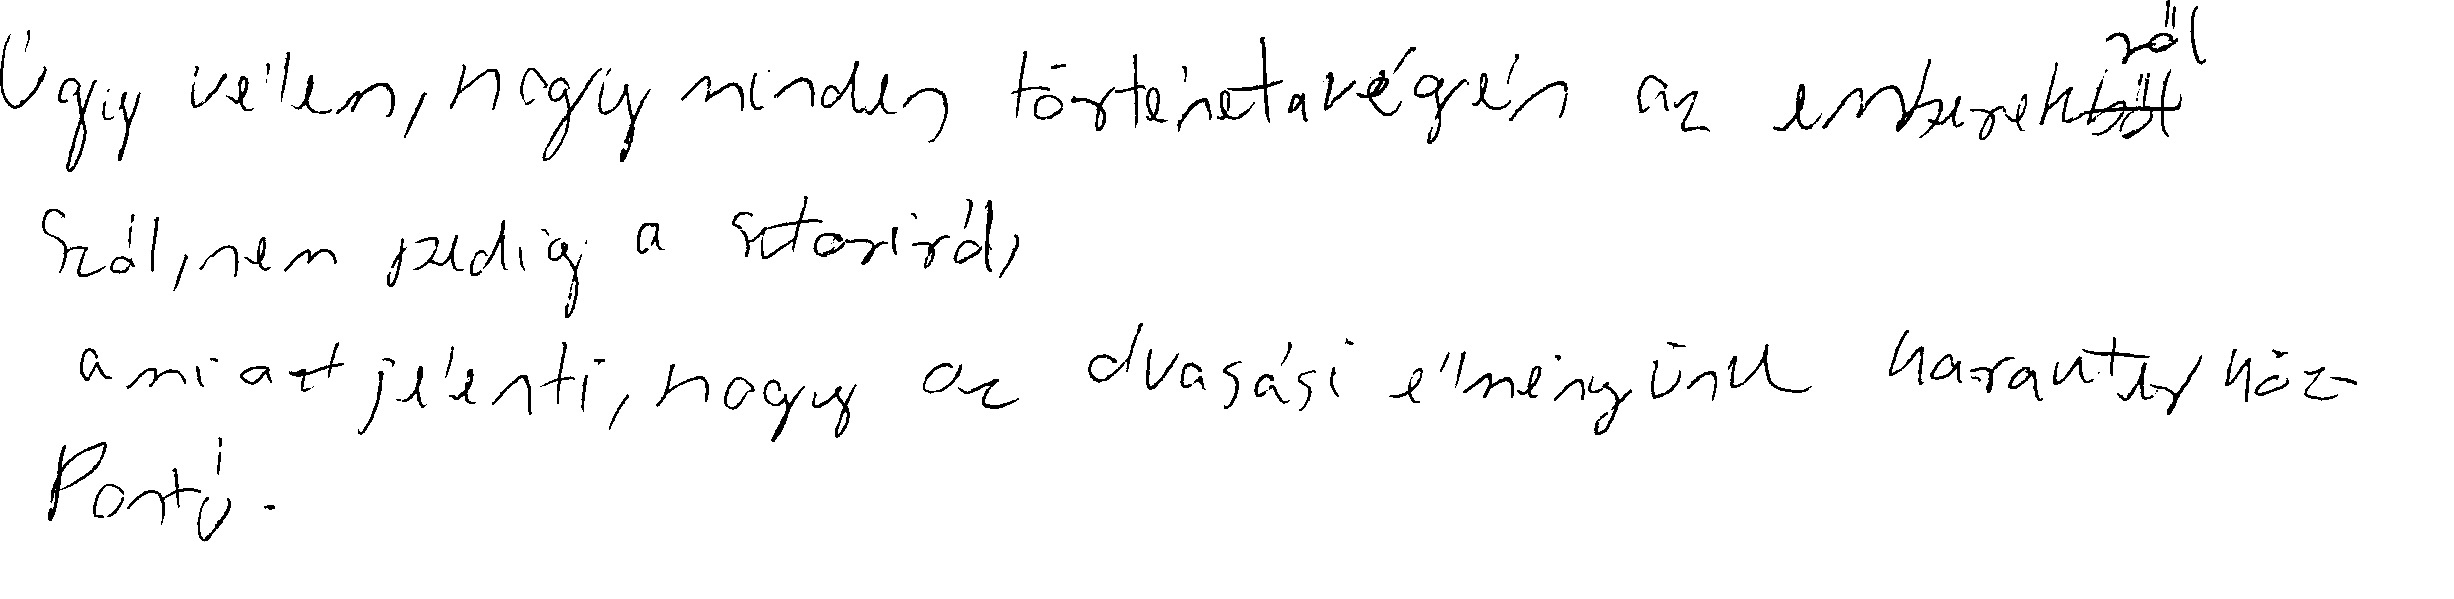 Úgy vélem, hogy minden történet a végén az emberekről
szól, nem pedig a sztoriról,
ami azt jelenti, hogy az olvasási élményünk karakterköz-
pontú.